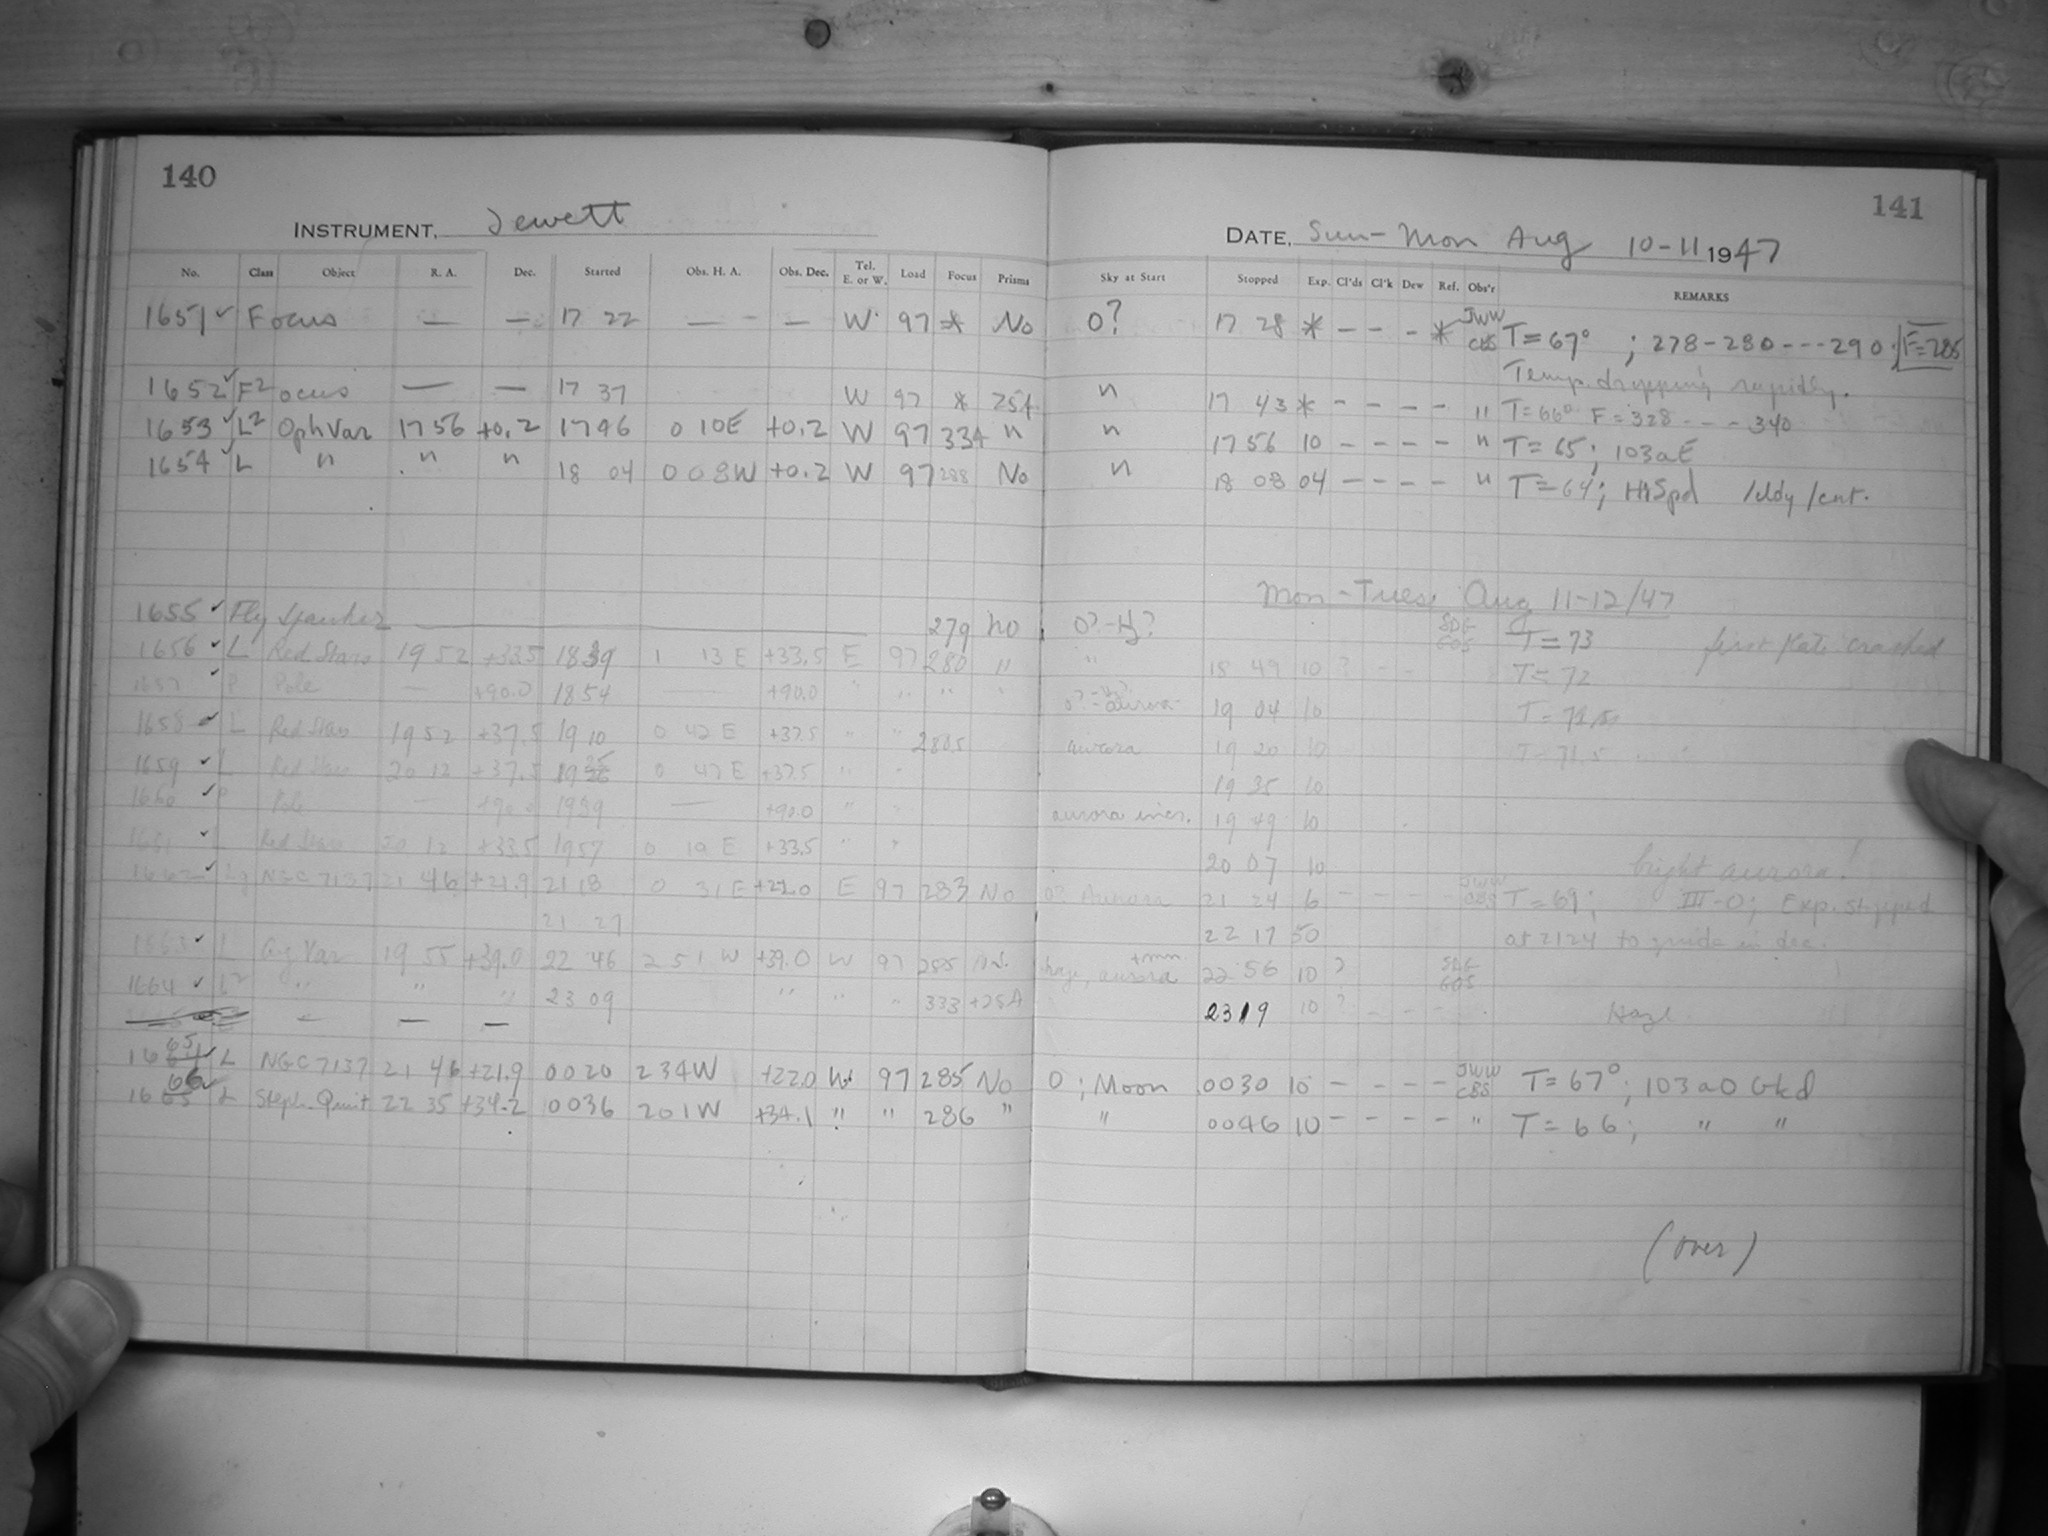 140
141
INSTRUMENT, Jewett
DATE, Sun-Mon Aug 10-11 1947
No. Class Object R. A. Dec. Started Obs. H. A. Obs. Dec. Tel. E. or W. Load Focus Prisms Sky at Start Stopped Exp. Cl'ds Cl'k Dew Ref. Obs'r REMARKS
1651 ✓ Focus — — 17 22 — — — W 97 * No 0? 17 28 * - - - * JWW CBS T=67° ; 278-280---290. F=285
Temp. dropping rapidly.
1652 ✓ F² ocus — — 17 37 W 97 * 25A " 17 43 * - - - - " T=66° F=328---340
1653 ✓ L² Oph Var 17 56 +0.2 17 46 0 10E +0.2 W 97 334 " " 17 56 10 - - - - " T=65; 103aE
1654 ✓ L " " " 18 04 0 08W +0.2 W 97 288 No " 18 08 04 - - - - " T=64; HiSpd
Mon-Tues, Aug 11-12/47
1655 ✓ Fly Spanker 279 no 0?-H₃? SDG GOS T=73 first Kate crashed
1656 ✓ L Red Stars 19 52 +33.5 18 39 1 13 E +33.5 E 97 280 " " 18 49 10 ? - - T=72
1657 ✓ P Pole — +90.0 18 54 — +90.0 " " " " aurora 19 04 10
1658 ✓ L Red Stars 19 52 +37.5 19 10 0 42 E +37.5 " " 280.5 aurora 19 20 10 T=71.5
1659 ✓ L Red Stars 20 12 +37.5 19 25 0 47 E +37.5 " " 19 35 10
1660 ✓ P Pole — +90.0 19 39 — +90.0 " " aurora incr. 19 49 10
1661 ✓ L Red Stars 20 12 +33.5 19 57 0 19 E +33.5 " " 20 07 10 bright aurora!
1662 ✓ Lg NGC 7137 21 46 +21.9 21 18 0 31 E +22.0 E 97 283 No 0? Aurora 21 24 6 - - - - JWW CBS T=69; III-0; Exp. stopped
21 27 22 17 50 at 2124 to guide in dec.
1663 ✓ L Cyg Var 19 55 +39.0 22 46 2 51 W +39.0 W 97 285 no haze, aurora + mn 22 56 10 ? SDG GOS
1664 ✓ L² " " " 23 09 " " " 333 +25A 23 19 10 ? - - - Haze
1665 ✓ L NGC 7137 21 46 +21.9 0020 2 34W +22.0 W 97 285 No 0; Moon 0030 10 - - - - JWW CBS T=67°; 103a0 Gkd
1666 ✓ L Steph. Quint 22 35 +34.2 0036 2 01W +34.1 " " 286 " " 0046 10 - - - - " T=66; " "
(over)